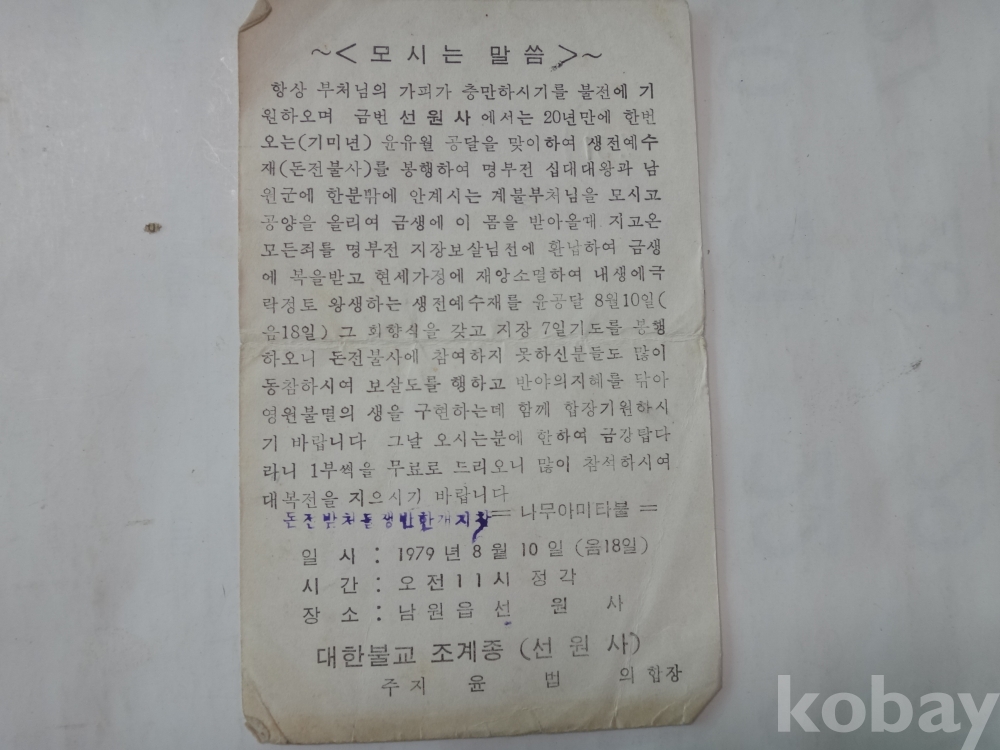 ~< 모시는 말씀 >~
항상 부처님의 가피가 충만하시기를 불전에 기
원하오며 금번 선원사 에서는 20년만에 한번
오는(기미년) 윤유월 공달을 맞이하여 생전예수
재(돈전불사)를 봉행하여 명부전 십대대왕과 남
원군에 한분밖에 안계시는 계불부처님을 모시고
공양을 올리여 금생에 이 몸을 받아올때 지고온
모든죄를 명부전 지장보살님전에 환납하여 금생
에 복을받고 현세가정에 재앙소멸하여 내생에극
락정토 왕생하는 생전예수재를 윤공달 8월10일(
음18일) 그 회향식을 갖고 지장 7일기도를 봉행
하오니 돈전불사에 참여하지 못하신분들도 많이
동참하시여 보살도를 행하고 반야의지혜를 닦아
영원불멸의 생을 구현하는데 함께 합장기원하시
기 바랍니다 그날 오시는분에 한하여 금강탑다
라니 1부씩을 무료로 드리오니 많이 참석하시여
대복전을 지으시기 바랍니다
= 나무아미타불 =
일 시 : 1979 년 8 월 10 일 (음18일)
시 간 : 오 전 11 시 정 각
장 소 : 남 원 읍 선 원 사
대한불교 조계종 (선 원 사)
주 지 윤 법 의 합장
kobay